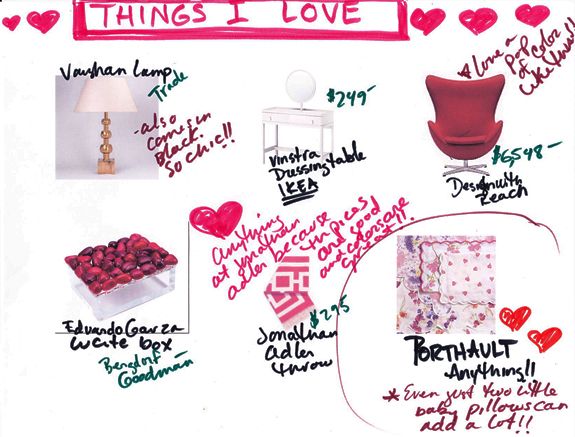 THINGS I LOVE
Vaughan Lamp
Trade
-also
comes in
Black.
so chic!!
$249-
Vinstra
Dressing table
IKEA
* love a
pop color
of
like this!!
$6,548-
Design within
Reach
Anything
at Jonathan
adler because
prices
are good
and
great!!
Eduardo Garza
white box
Bergdorf
Goodman
$295
Jonathan
adler
throw
PORTHAULT
Anything!!
* Even just two little
baby pillows can
add a lot!!